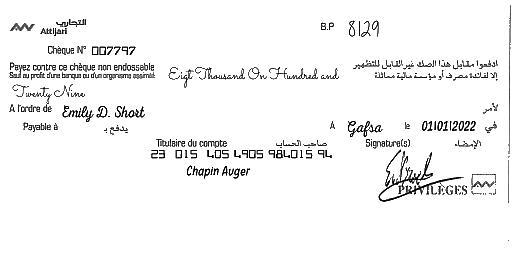 التجاري
Attijari
B.P 8129
Chèque N° 007797
Payez contre ce chèque non endossable
Sauf au profit d'une banque ou d'un organisme assimilé
Eigt Thousand On Hundred and
ادفعوا مقابل هذا الصك غير القابل للتظهير
إلا لفائدة مصرف أو مؤسسة مالية مماثلة
Twenty Nine
A l'ordre de Emily D. Short لأمر
Payable à يدفع بـ
A Gafsa le 01/01/2022 في
Titulaire du compte صاحب الحساب
Signature(s) الإمضاء
23 015 405 4905 984015 94
Chapin Auger
PRIVILÈGES